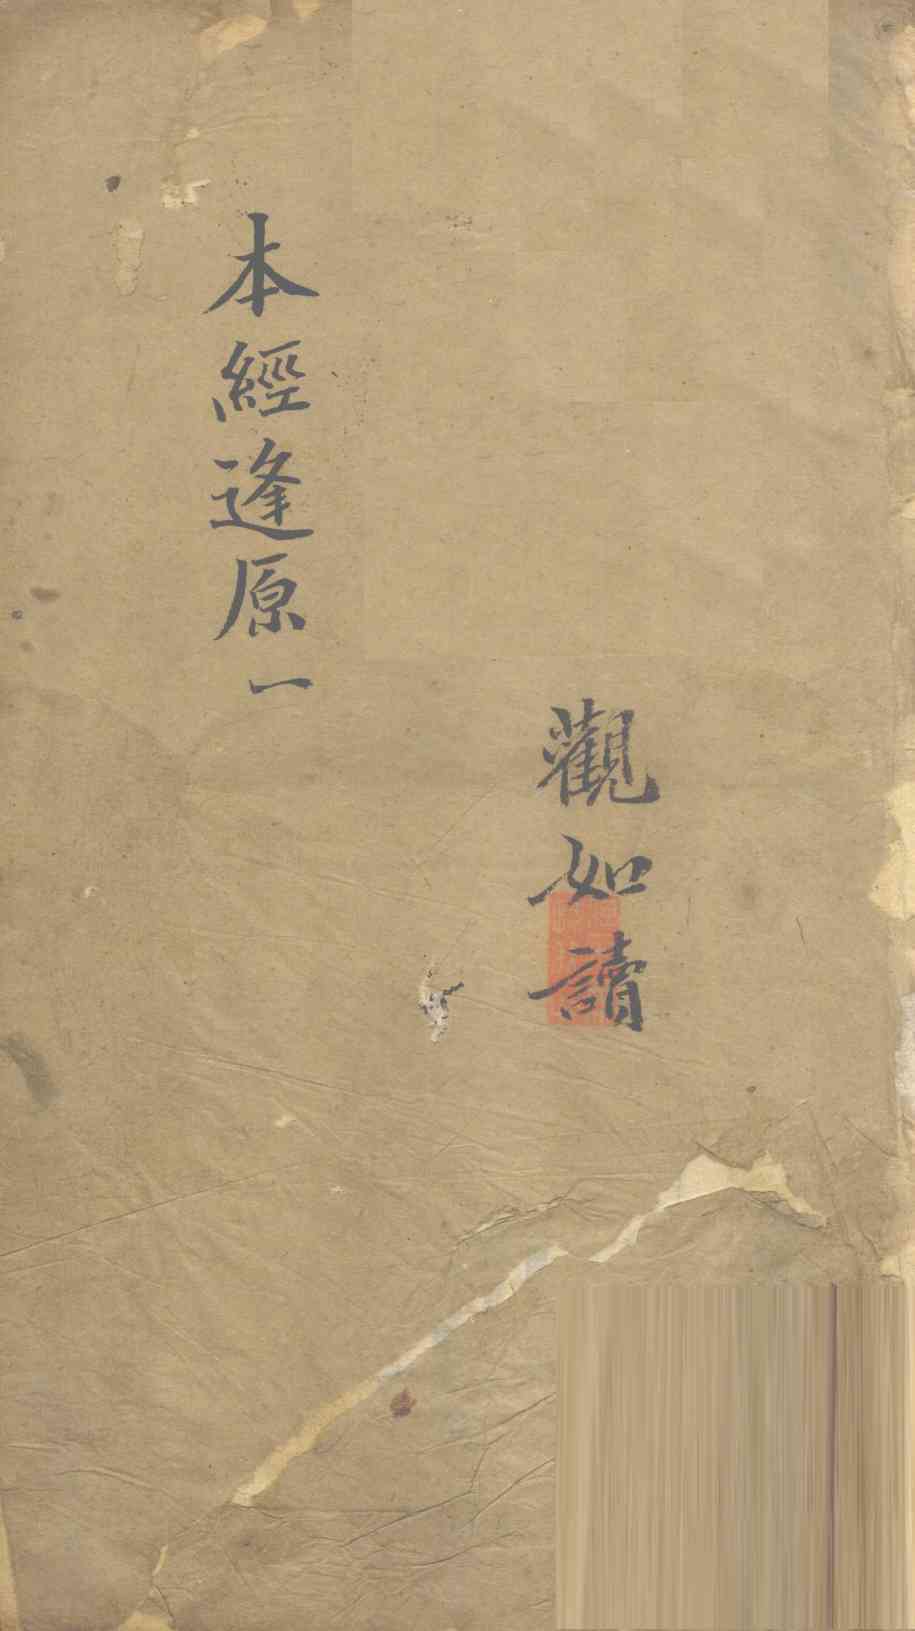 觀如讀
本經逢原一